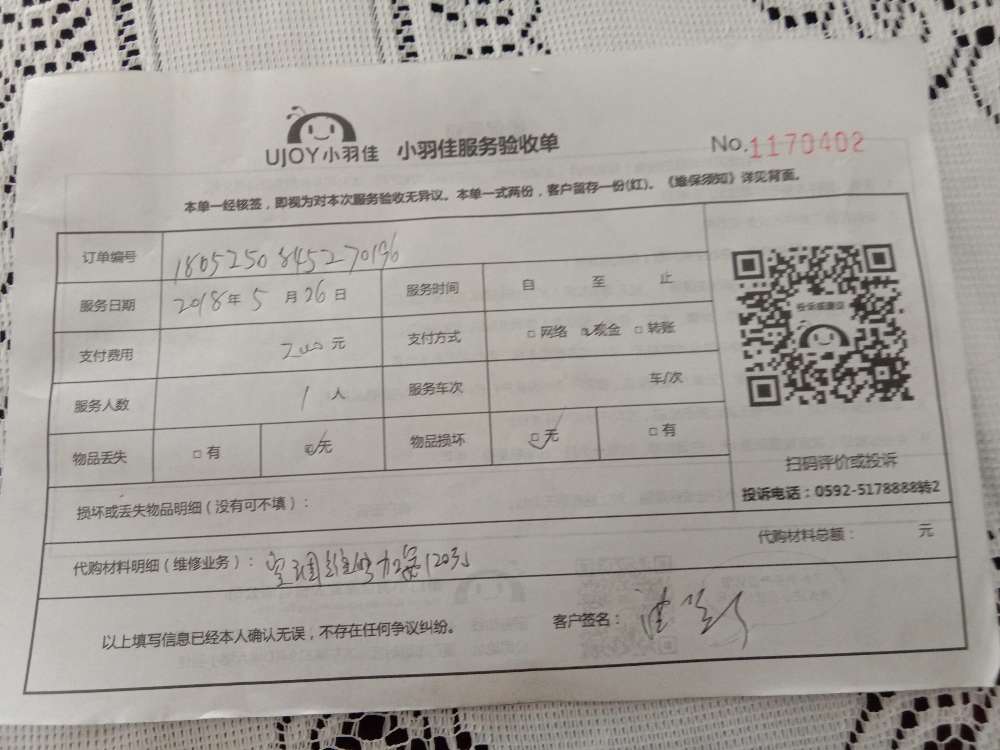 UJOY小羽佳 小羽佳服务验收单 No.1170402
本单一经核签，即视为对本次服务验收无异议。本单一式两份，客户留存一份(红)。《维保须知》详见背面。
订单编号 1805250845270196
服务日期 2018年5月26日 服务时间 自 至 止
支付费用 200元 支付方式 □网络 □现金 □转账
服务人数 1人 服务车次 车/次
物品丢失 □有 □无 物品损坏 □无 □有
投诉或建议
扫码评价或投诉
投诉电话：0592-5178888转2
损坏或丢失物品明细（没有可不填）：
代购材料明细（维修业务）：空调维修加氨 代购材料总额： 元
以上填写信息已经本人确认无误，不存在任何争议纠纷。 客户签名：